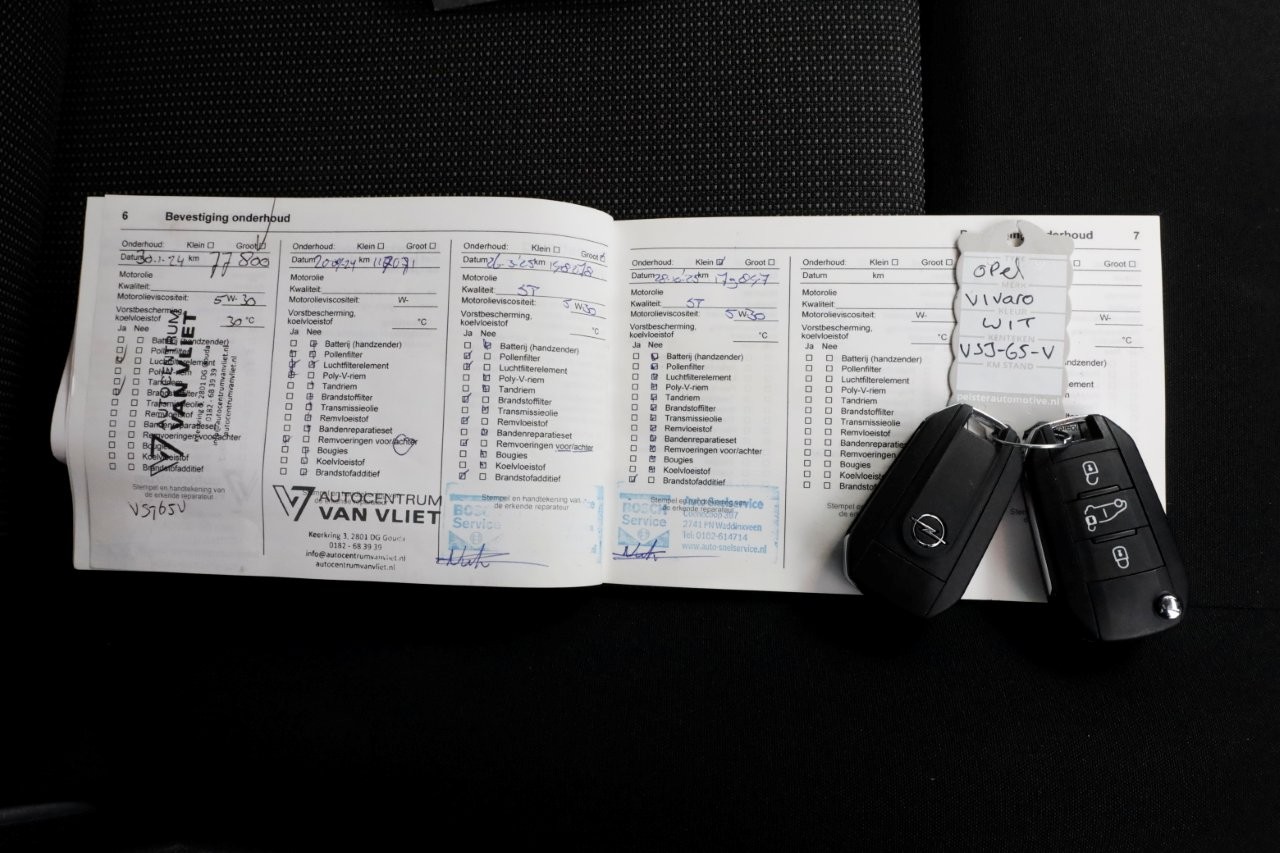 6 Bevestiging onderhoud
Onderhoud: Klein Groot
Datum 30.1.24 km 77800
Motorolie
Kwaliteit:
Motorolieviscositeit: 5W-30
Vorstbescherming, koelvloeistof 30 °C
Ja Nee
Batterij (handzender)
Pollenfilter
Luchtfilterelement
Poly-V-riem
Tandriem
Brandstoffilter
Transmissieolie
Remvloeistof
Bandenreparatieset
Remvoeringen voor/achter
Bougies
Koelvloeistof
Brandstofadditief
Stempel en handtekening van
de erkende reparateur
VSJ65V
AUTOCENTRUM
VAN VLIET
Keerkring 3, 2801 DG Gouda
0182 - 68 39 39
info@autocentrumvanvliet.nl
autocentrumvanvliet.nl
Onderhoud: Klein Groot
Datum km
Motorolie
Kwaliteit:
Motorolieviscositeit: W-
Vorstbescherming,
koelvloeistof °C
Ja Nee
Batterij (handzender)
Pollenfilter
Luchtfilterelement
Poly-V-riem
Tandriem
Brandstoffilter
Transmissieolie
Remvloeistof
Bandenreparatieset
Remvoeringen voor/achter
Bougies
Koelvloeistof
Brandstofadditief
AUTOCENTRUM
VAN VLIET
Keerkring 3, 2801 DG Gouda
0182 - 68 39 39
info@autocentrumvanvliet.nl
autocentrumvanvliet.nl
Onderhoud: Klein Groot
Datum km
Motorolie
Kwaliteit: ST
Motorolieviscositeit: 5W30
Vorstbescherming,
koelvloeistof °C
Ja Nee
Batterij (handzender)
Pollenfilter
Luchtfilterelement
Poly-V-riem
Tandriem
Brandstoffilter
Transmissieolie
Remvloeistof
Bandenreparatieset
Remvoeringen voor/achter
Bougies
Koelvloeistof
Brandstofadditief
Stempel en handtekening van
de erkende reparateur
BOSCH
Service
onderhoud 7
Onderhoud: Klein Groot
Datum km
Motorolie
Kwaliteit: ST
Motorolieviscositeit: 5W30
Vorstbescherming,
koelvloeistof °C
Ja Nee
Batterij (handzender)
Pollenfilter
Luchtfilterelement
Poly-V-riem
Tandriem
Brandstoffilter
Transmissieolie
Remvloeistof
Bandenreparatieset
Remvoeringen voor/achter
Bougies
Koelvloeistof
Brandstofadditief
BOSCH
Service
Auto Snelservice
2741 PN Waddinxveen
Tel: 0182-614714
www.auto-snelservice.nl
Onderhoud: Klein Groot
Datum km
Motorolie
Kwaliteit:
Motorolieviscositeit: W-
Vorstbescherming,
koelvloeistof
Ja Nee
Batterij (handzender)
Pollenfilter
Luchtfilterelement
Poly-V-riem
Tandriem
Brandstoffilter
Transmissieolie
Remvloeistof
Bandenreparatieset
Remvoeringen
Bougies
Koelvloeistof
Groot
W-
°C
opel
MERK
vivaro
KLEUR
WIT
KENTEKEN
VSJ-65-V
KM STAND
pelsterautomotive.nl